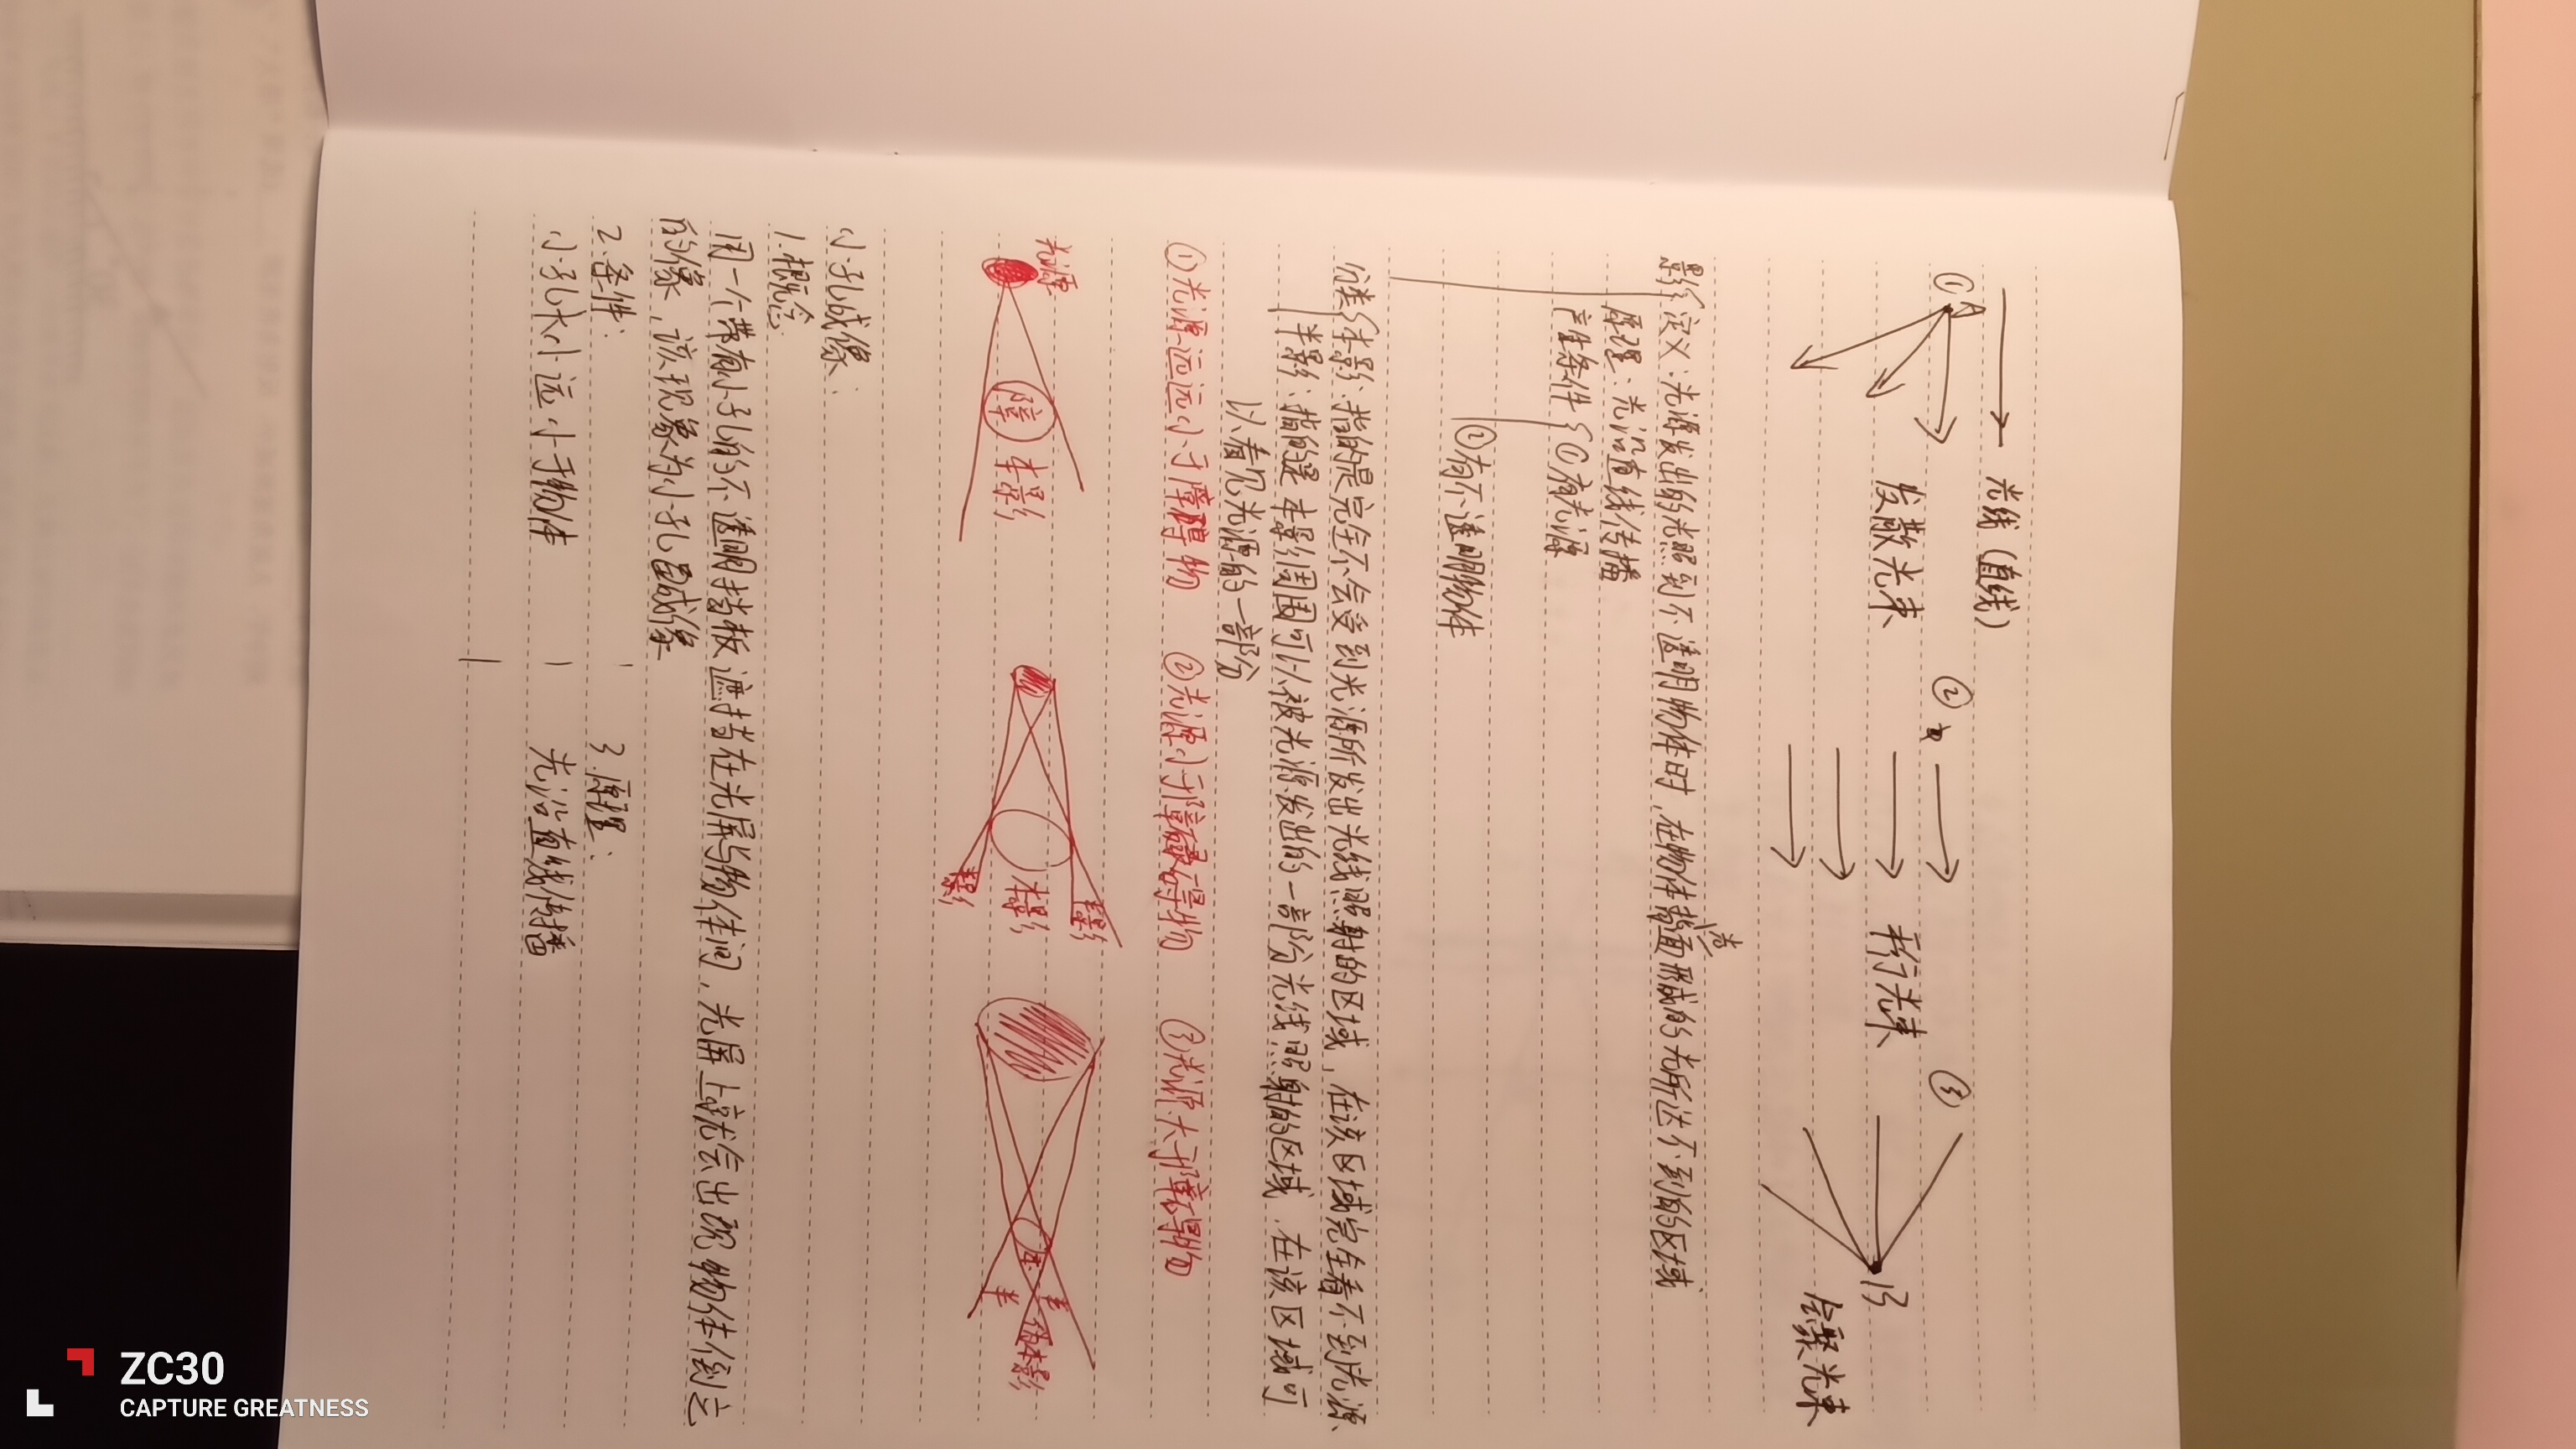 光线(直线)
①A
发散光束
②
平行光束
③
B
会聚光束
影{定义:光源发出的光照到不透明物体时,在物体背光面形成的光所达不到的区域
原理:光沿直线传播
产生条件{①有光源
②有不透明物体
分类{本影:指的是完全不会受到光源所发出光线照射的区域,在该区域完全看不到光源
半影:指的是本影周围可以被光源发出的一部分光线照射的区域,在该区域可
以看见光源的一部分
①光源远远小于障碍物 ②光源小于障碍物 ③光源大于障碍物
光源
障
本影
半影
本影
半影
本
半
半
伪本影
小孔成像:
1.概念
用一个带有小孔的不透明挡板遮挡在光屏与物体间,光屏上就会出现物体倒立
的像,该现象为小孔成像
2.条件: 3.原理:
小孔大小远小于物体 光沿直线传播
ZC30
CAPTURE GREATNESS